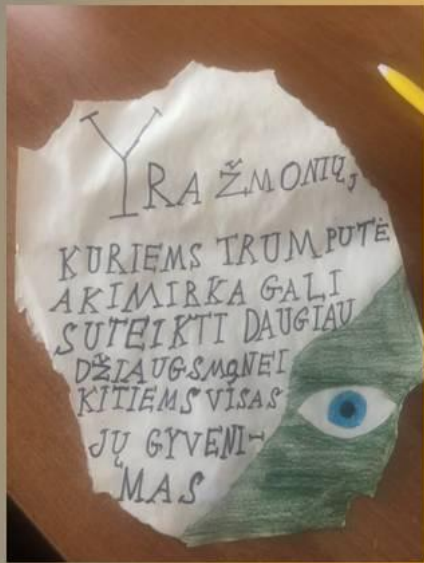 YRA ŽMONIŲ,
KURIEMS TRUMPUTĖ
AKIMIRKA GALI
SUTEIKTI DAUGIAU
DŽIAUGSMO NEI
KITIEMS VISAS
JŲ GYVENI-
MAS